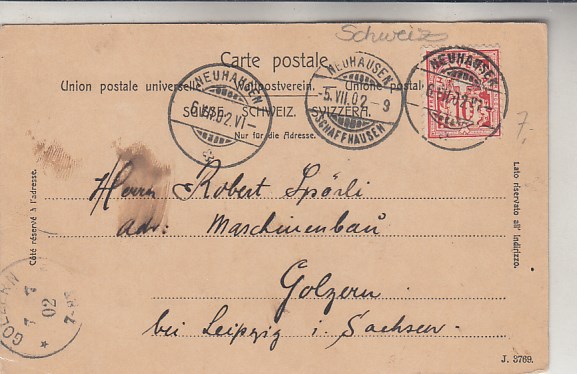 Schweiz
Carte postale.
Union postale universelle. Weltpostverein. Unione postale
SUISSE. SCHWEIZ. SVIZZERA.
Nur für die Adresse.
NEUHAUSEN
6.VII.02.VI
NEUHAUSEN
-5.VII.02-9
SCHAFFHAUSEN
NEUHAUSEN
10
7.-
Côté réservé à l'adresse.
Lato riservato all' indirizzo.
Herrn Robert Spörli
adr: Maschinenbau
Golzern
bei Leipzig i. Sachsen.
GOLZERN
7 7
02
7-8
J. 3769.